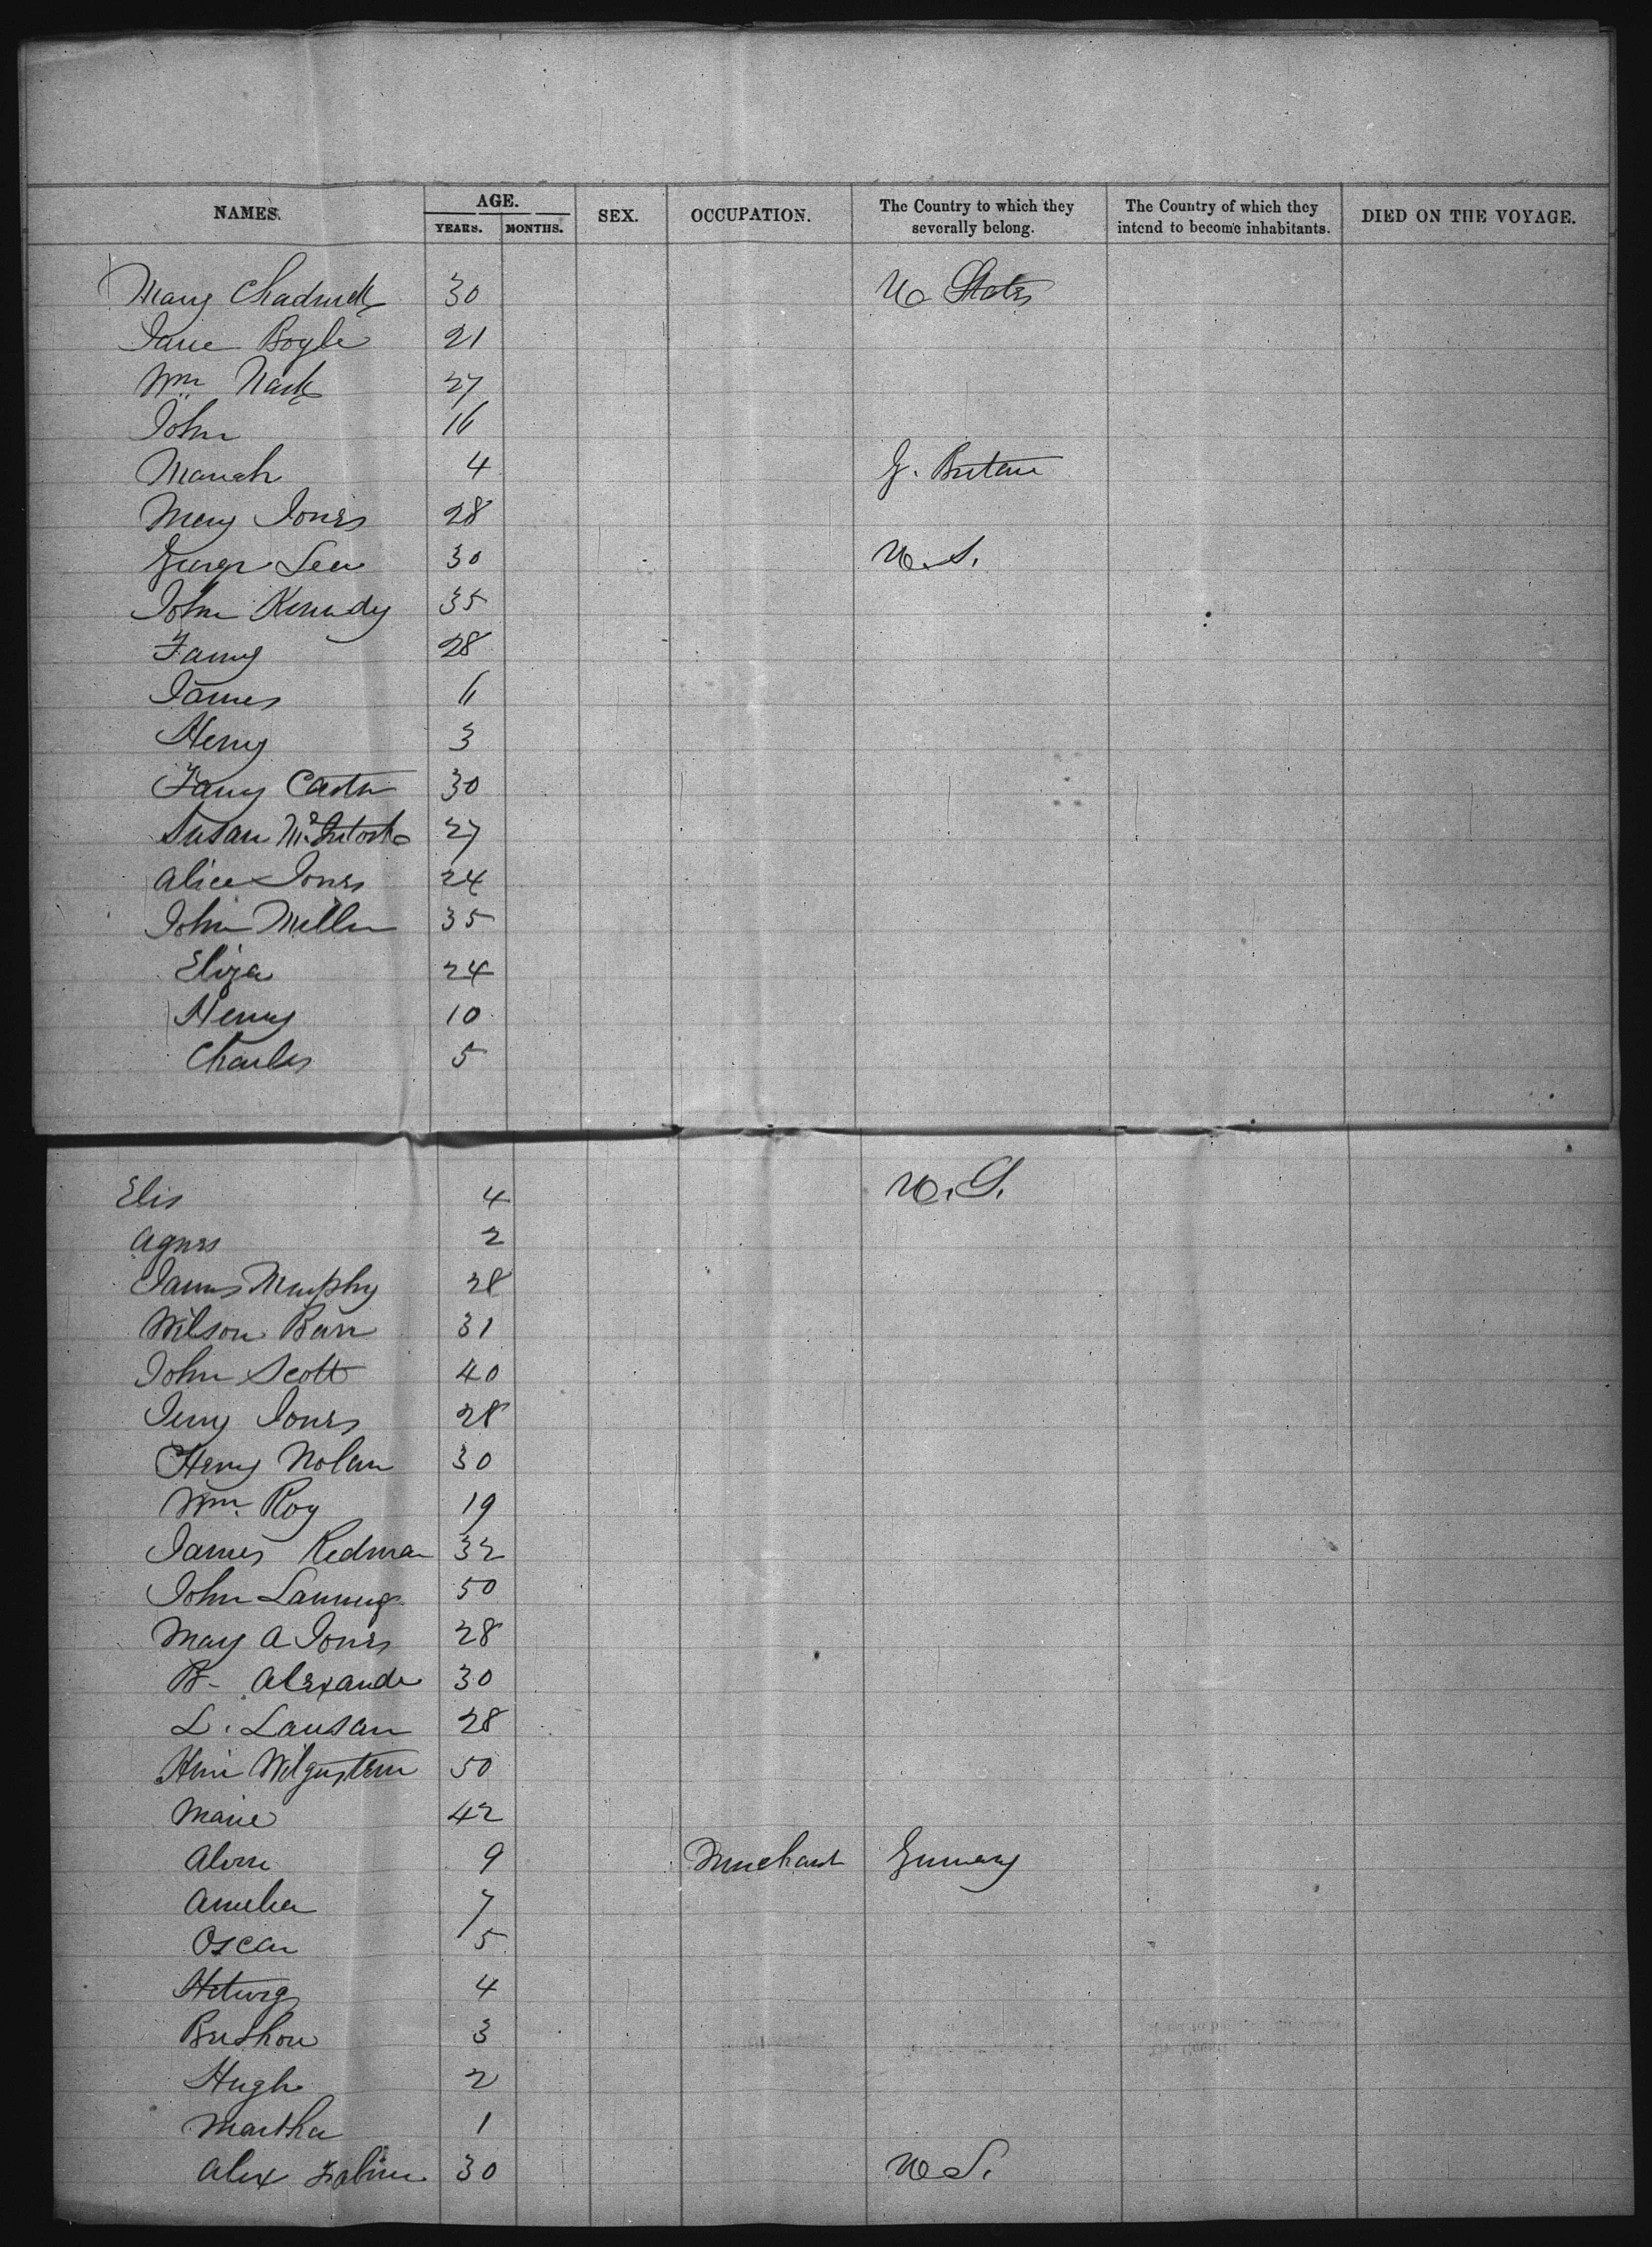 NAMES. AGE. SEX. OCCUPATION. The Country to which they severally belong. The Country of which they intend to become inhabitants. DIED ON THE VOYAGE.
YEARS. MONTHS.
Mary Chadwick 30 U States
Jane Boyle 21
Wm Nash 27
John 16
Manah 4 G. Britain
Mary Jones 28
George Lee 30 U. S.
John Kennedy 35
Fanny 28
James 11
Henry 3
Fanny Carter 30
Susan McIntosh 27
Alice Jones 24
John Miller 35
Eliza 24
Henry 10
Charles 5
Elis 4 U. S.
Agnes 2
James Murphy 28
Wilson Barr 31
John Scott 40
Jenny Jones 28
Henry Nolan 30
Wm. Roy 19
James Redman 32
John Lanning 50
Mary A Jones 28
B- Alexander 30
L. Lausan 28
50
Marie 42
9 Merchant Germany
Amelia 7
Oscar 5
Hetwig 4
3
Hugh 2
Martha 1
Alex 30 U S.